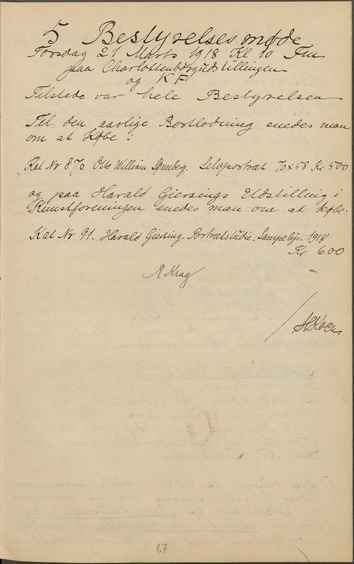 5 Bestyrelsesmøde
Torsdag 21 Marts 1918 Kl 10 Fm
paa Charlottenborgudstillingen
og KF
Tilstede var hele Bestyrelsen
Til den aarlige Bortlodning enedes man
om at købe:
Kat Nr 870 Otto William Selvportræt 70x58 Kr 500
og paa Harald Giersings Udstilling i
Kunstforeningen enedes man om at købe.
Kat Nr 91. Harald Giersing. Portrætstudie. 1918
Kr 600
A Krag
67